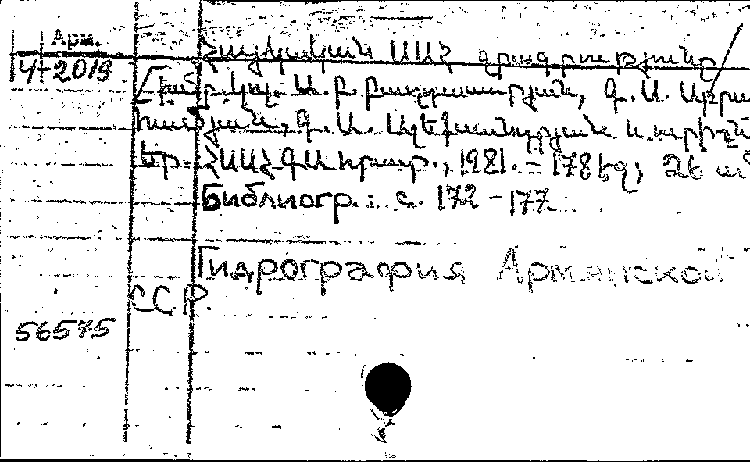 Арм.
Ч 2019
Հայկական ՍՍՀ ջրագրությունը
խմբ. կոլ. Ա. Բ. Բաղդասարյան, Գ. Ա. Աբրա
համյան, Գ. Ա. Ալեքսանդրյան և ուրիշն
Եր. ՀՍՍՀ ԳԱ հրատ., 1981. – 178 էջ, 26 սմ
Библиогр.: с. 172 – 177
Гидрография Армянской
ССР.
56575